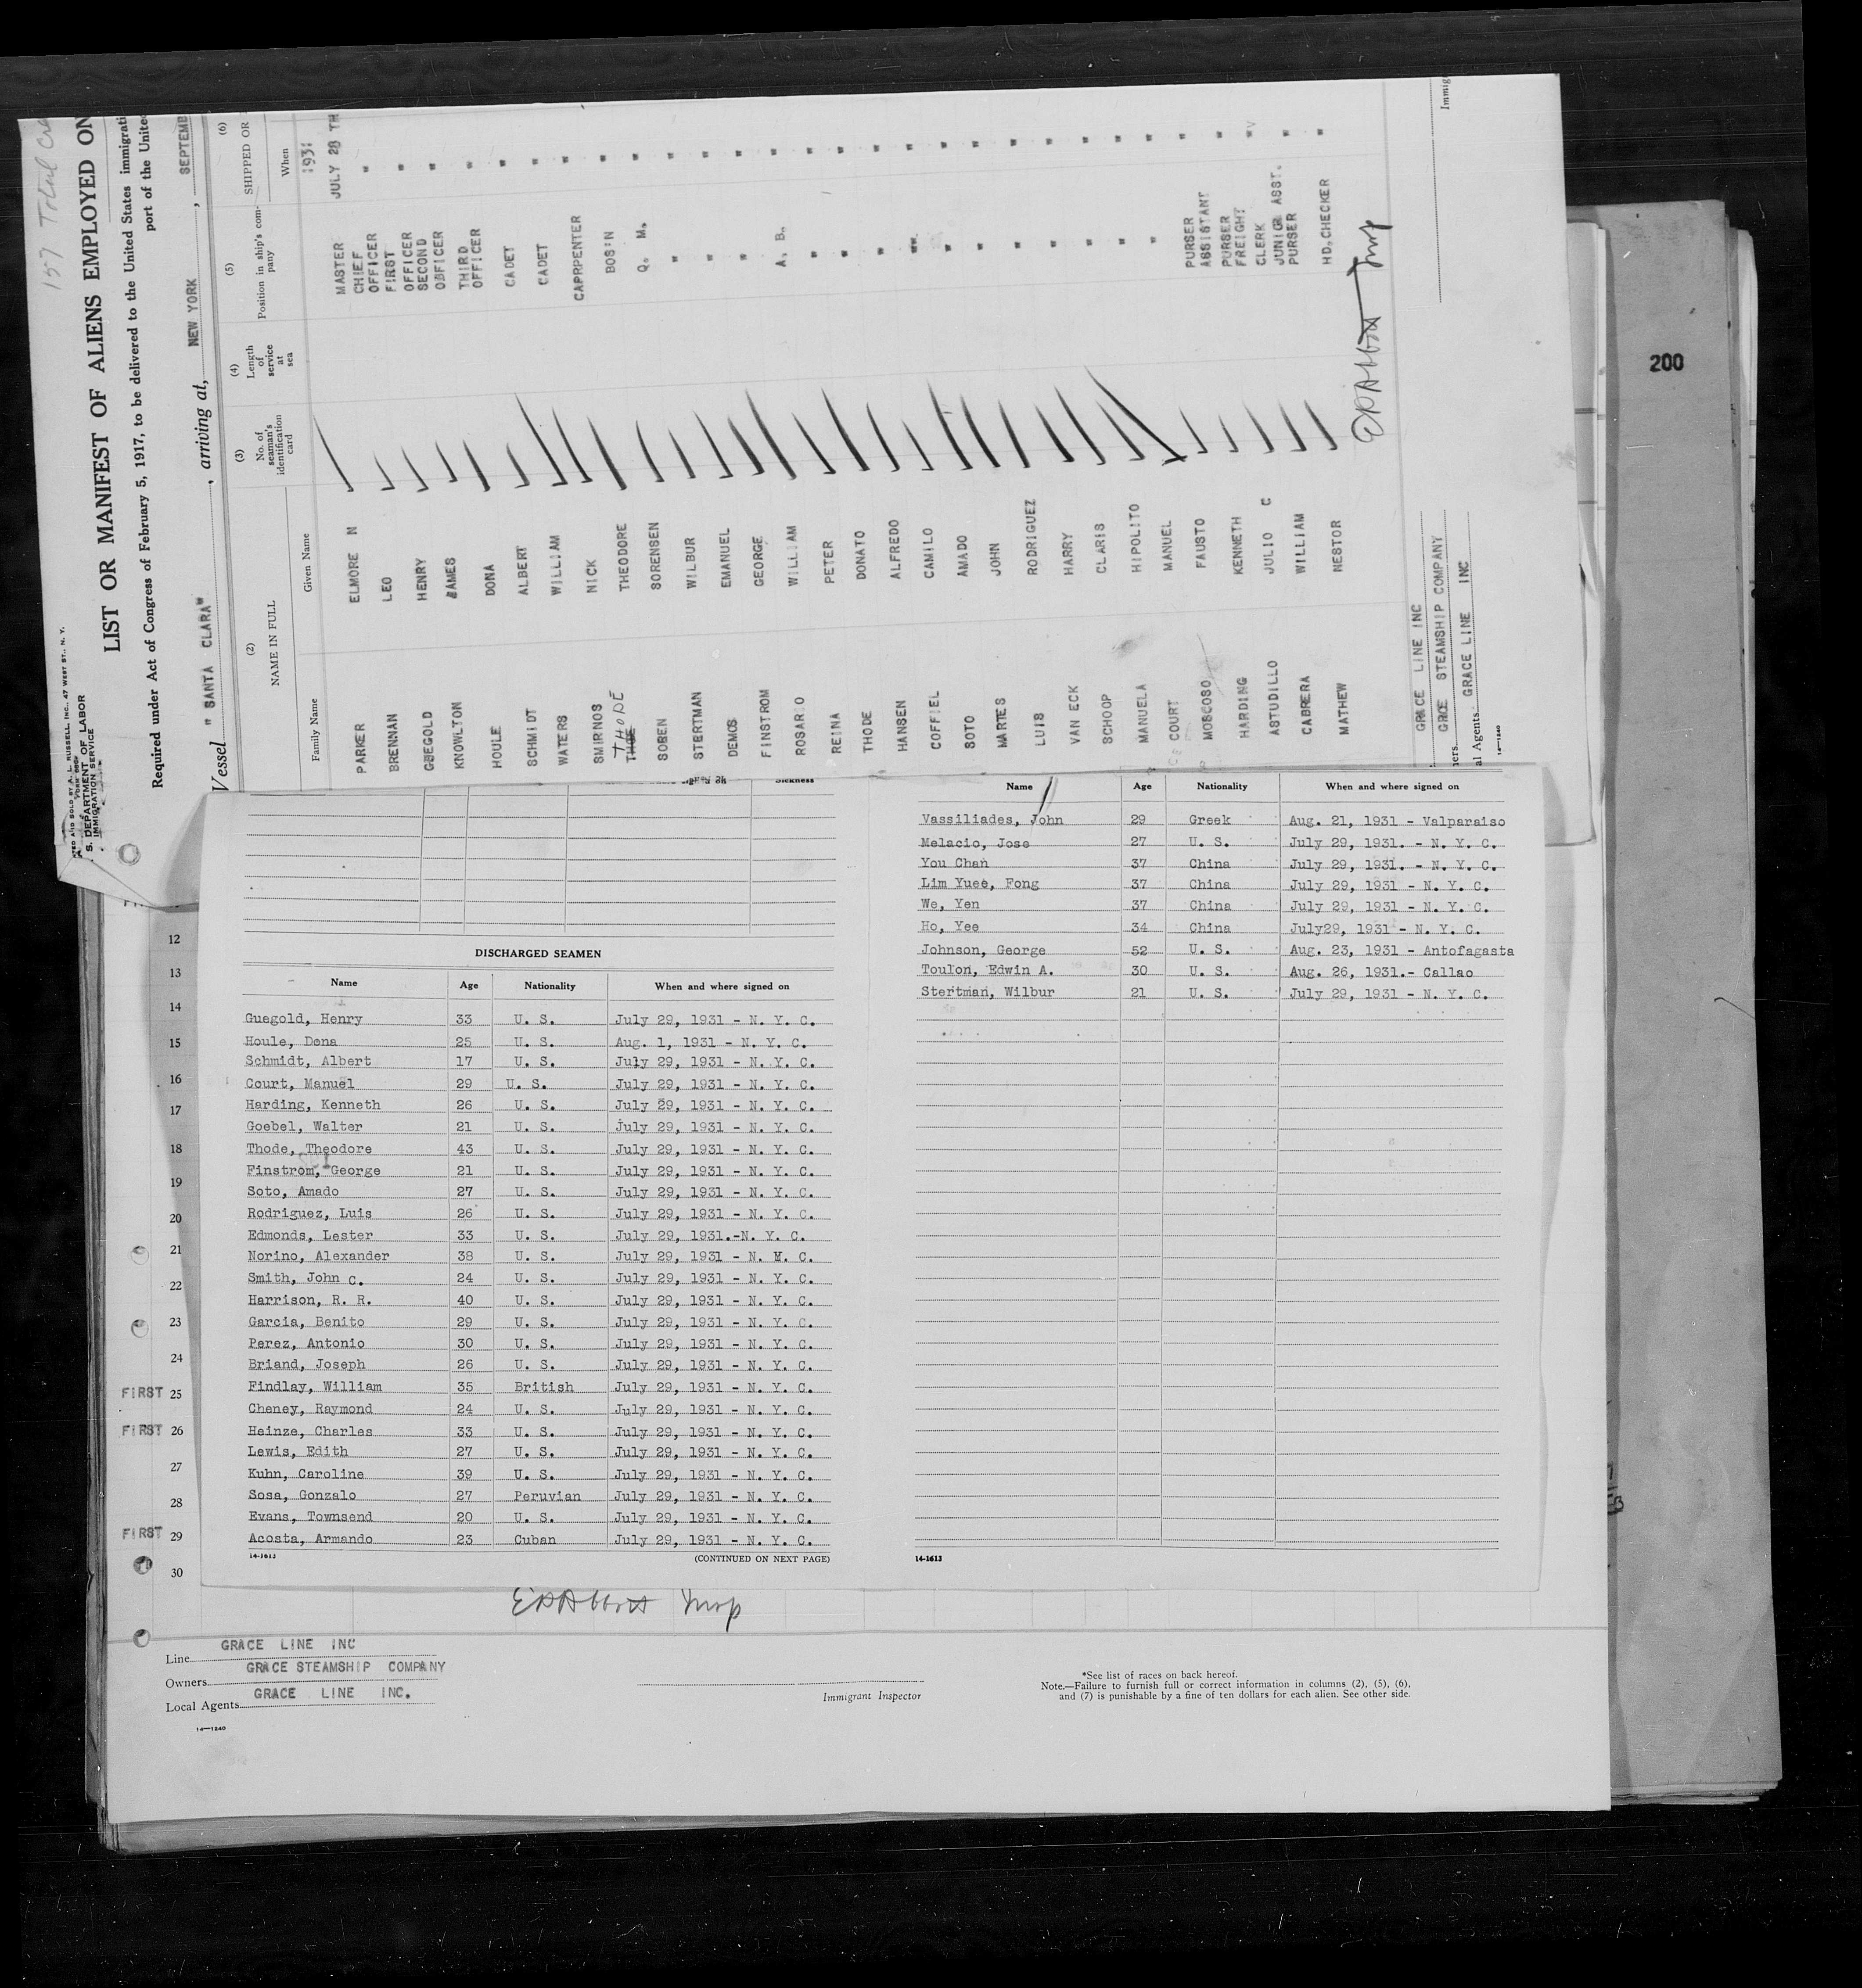 157 Total Cre
LIST OR MANIFEST OF ALIENS EMPLOYED ON
Required under Act of Congress of February 5, 1917, to be delivered to the United States immigrati
port of the United
S. DEPARTMENT OF LABOR
IMMIGRATION SERVICE
Vessel " SANTA CLARA" , arriving at, NEW YORK , SEPTEMB
(2) (3) (4) (5) (6)
NAME IN FULL No. of seaman's identification card Length of service at sea Position in ship's company SHIPPED OR
Family Name Given Name When
1931
PARKER ELMORE N MASTER JULY 28 TH
BRENNAN LEO CHIEF OFFICER "
GUEGOLD HENRY FIRST OFFICER "
KNOWLTON JAMES SECOND OFFICER "
HOULE DONA THIRD OFFICER "
SCHMIDT ALBERT CADET "
WATERS WILLIAM CADET "
SMIRNOS NICK CAPRPENTER "
THODE THEODORE BOS'N "
SOBEN SORENSEN Q. M. "
STERTMAN WILBUR " "
DEMOS EMANUEL " "
FINSTROM GEORGE " "
ROSARIO WILLIAM A. B. "
REINA PETER " "
THODE DONATO " "
HANSEN ALFREDO " "
COFFIEL CAMILO " "
SOTO AMADO " "
MARTES JOHN " "
LUIS RODRIGUEZ " "
VAN ECK HARRY " "
SCHOOP CLARIS " "
MANUELA HIPOLITO " "
COURT MANUEL PURSER "
MOSCOSO FAUSTO ASSISTANT PURSER "
HARDING KENNETH FREIGHT CLERK "
ASTUDILLO JULIO C JUNIOR ASST. PURSER "
CABRERA WILLIAM
MATHEW NESTOR HD. CHECKER "
EAAbbott Insp
GRACE LINE INC
GRCE STEAMSHIP COMPANY
al Agents GRACE LINE INC
14—1240
Immig
200
Sickness
DISCHARGED SEAMEN
Name Age Nationality When and where signed on
Guegold, Henry 33 U. S. July 29, 1931 - N. Y. C.
Houle, Dona 25 U. S. Aug. 1, 1931 - N. Y. C.
Schmidt, Albert 17 U. S. July 29, 1931 - N. Y. C.
Court, Manuel 29 U. S. July 29, 1931 - N. Y. C.
Harding, Kenneth 26 U. S. July 29, 1931 - N. Y. C.
Goebel, Walter 21 U. S. July 29, 1931 - N. Y. C.
Thode, Theodore 43 U. S. July 29, 1931 - N. Y. C.
Finstrom, George 21 U. S. July 29, 1931 - N. Y. C.
Soto, Amado 27 U. S. July 29, 1931 - N. Y. C.
Rodriguez, Luis 26 U. S. July 29, 1931 - N. Y. C.
Edmonds, Lester 33 U. S. July 29, 1931.-N. Y. C.
Norino, Alexander 38 U. S. July 29, 1931 - N. Y. C.
Smith, John C. 24 U. S. July 29, 1931 - N. Y. C.
Harrison, R. R. 40 U. S. July 29, 1931 - N. Y. C.
Garcia, Benito 29 U. S. July 29, 1931 - N. Y. C.
Perez, Antonio 30 U. S. July 29, 1931 - N. Y. C.
Briand, Joseph 26 U. S. July 29, 1931 - N. Y. C.
Findlay, William 35 British July 29, 1931 - N. Y. C.
Cheney, Raymond 24 U. S. July 29, 1931 - N. Y. C.
Heinze, Charles 33 U. S. July 29, 1931 - N. Y. C.
Lewis, Edith 27 U. S. July 29, 1931 - N. Y. C.
Kuhn, Caroline 39 U. S. July 29, 1931 - N. Y. C.
Sosa, Gonzalo 27 Peruvian July 29, 1931 - N. Y. C.
Evans, Townsend 20 U. S. July 29, 1931 - N. Y. C.
Acosta, Armando 23 Cuban July 29, 1931 - N. Y. C.
14-1613 (CONTINUED ON NEXT PAGE)
Name Age Nationality When and where signed on
Vassiliades, John 29 Greek Aug. 21, 1931 - Valparaiso
Melacio, Jose 27 U. S. July 29, 1931. - N. Y. C.
You Chan 37 China July 29, 1931. - N. Y. C.
Lim Yuee, Fong 37 China July 29, 1931 - N. Y. C.
We, Yen 37 China July 29, 1931 - N. Y. C.
Ho, Yee 34 China July29, 1931 - N. Y. C.
Johnson, George 52 U. S. Aug. 23, 1931 - Antofagasta
Toulon, Edwin A. 30 U. S. Aug. 26, 1931.- Callao
Stertman, Wilbur 21 U. S. July 29, 1931 - N. Y. C.
14-1613
12
13
14
15
16
17
18
19
20
21
22
23
24
FIRST 25
FIRST 26
27
28
FIRST 29
30
EAAbbott Insp
Line GRACE LINE INC
Owners GRACE STEAMSHIP COMPANY
Local Agents GRACE LINE INC.
14—1240
Immigrant Inspector
*See list of races on back hereof.
Note.—Failure to furnish full or correct information in columns (2), (5), (6),
and (7) is punishable by a fine of ten dollars for each alien. See other side.